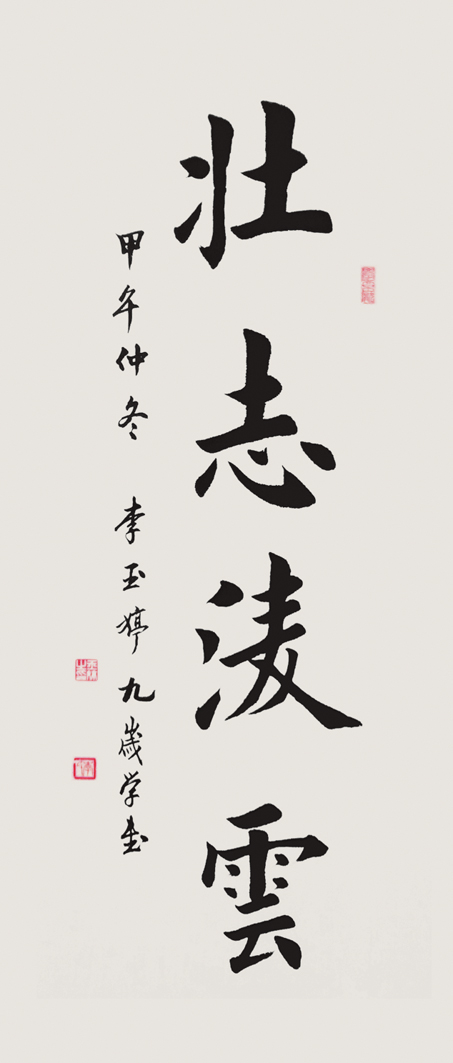 壮志淩雲
甲午仲冬 李玉婷九歲学書